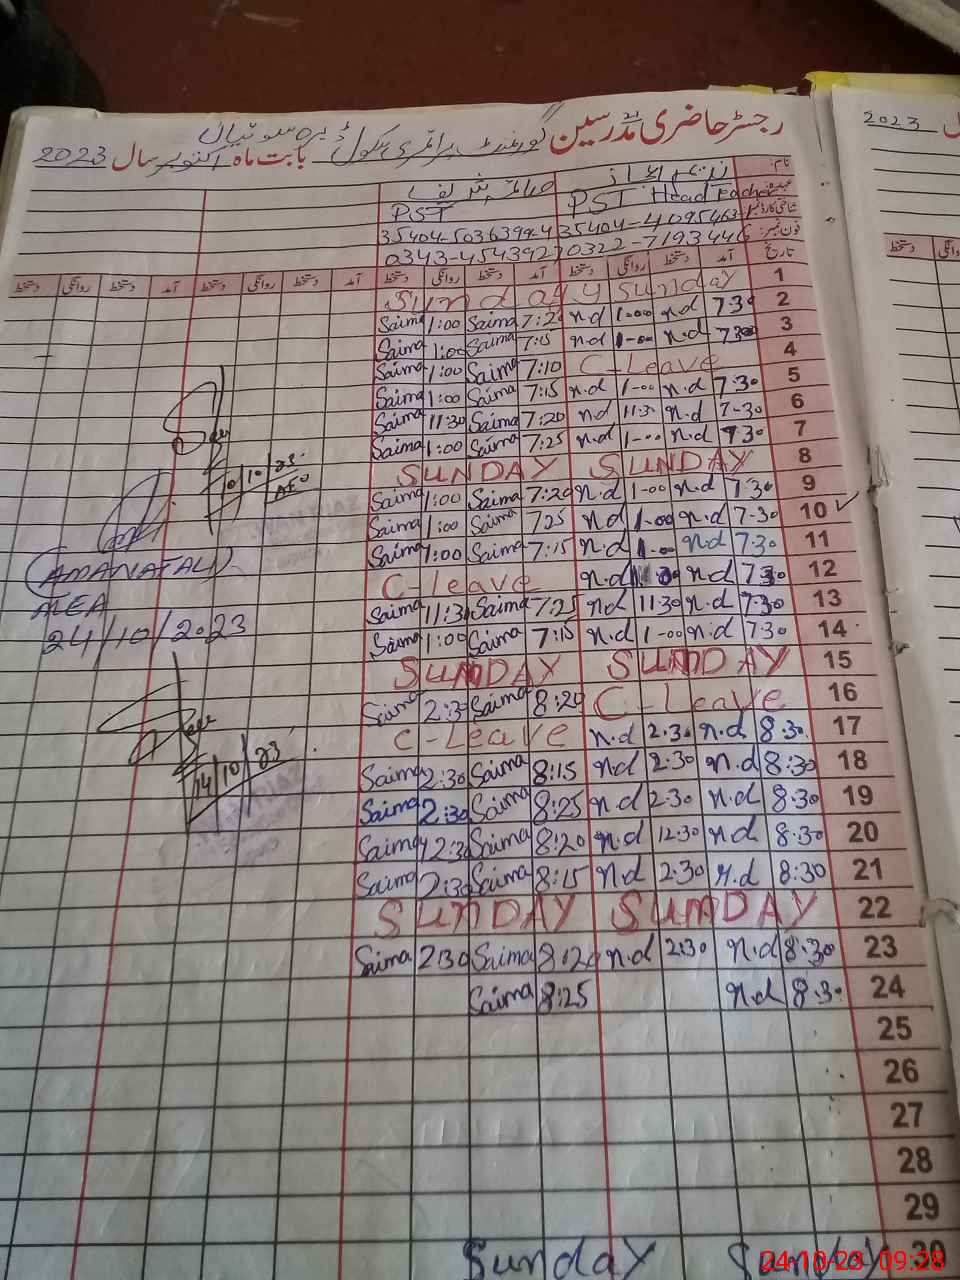 رجسٹر حاضری مدرسین گورنمنٹ پرائمری سکول ڈیرہ سوتیال بابت ماہ اکتوبر سال 2023
نام:
عہدہ: PST Head PST
شناختی کارڈ نمبر 35404-4095463- 35404-5036399-4
فون نمبر: 0322-7193446 0343-4543927
تاریخ آمد دستخط روانگی دستخط آمد دستخط روانگی دستخط آمد دستخط روانگی دستخط آمد دستخط روانگی دستخط
1 Sunday Sunday
2 7:30 n.d 1-00 n.d 7:20 Saima 1:00 Saima
3 7:30 n.d 1-00 n.d 7:15 Saima 1:00 Saima
4 C-Leave 7:10 Saima 1:00 Saima
5 7:30 n.d 1-00 n.d 7:15 Saima 1:00 Saima
6 7-30 n.d 11:30 n.d 7:20 Saima 11:30 Saima
7 7:30 n.d 1-00 n.d 7:25 Saima 1:00 Saima
8 SUNDAY SUNDAY
9 7:30 n.d 1-00 n.d 7:20 Saima 1:00 Saima
10 7-30 n.d 1-00 n.d 7:25 Saima 1:00 Saima
11 7:30 n.d 1-00 n.d 7:15 Saima 1:00 Saima
12 7:30 n.d n.d C-leave
13 7:30 n.d 11:30 n.d 7:25 Saima 11:30 Saima
14 7:30 n.d 1-00 n.d 7:15 Saima 1:00 Saima
15 SUNDAY SUNDAY
16 C-Leave 8:20 Saima 2:30 Saima
17 8:30 n.d 2:30 n.d C-Leave
18 8:30 n.d 2:30 n.d 8:15 Saima 2:30 Saima
19 8:30 n.d 2:30 n.d 8:25 Saima 2:30 Saima
20 8:30 n.d 12:30 n.d 8:20 Saima 12:30 Saima
21 8:30 n.d 2:30 n.d 8:15 Saima 2:30 Saima
22 SUNDAY SUNDAY
23 8:30 n.d 2:30 n.d 8:20 Saima 2:30 Saima
24 8:30 n.d 8:25 Saima
25
26
27
28
29
30 Sunday Sunday
10/10/23
AEO
(AMANAT ALI)
AEA
24/10/2023
14/10/23
2023 سال
24-10-23 09:28